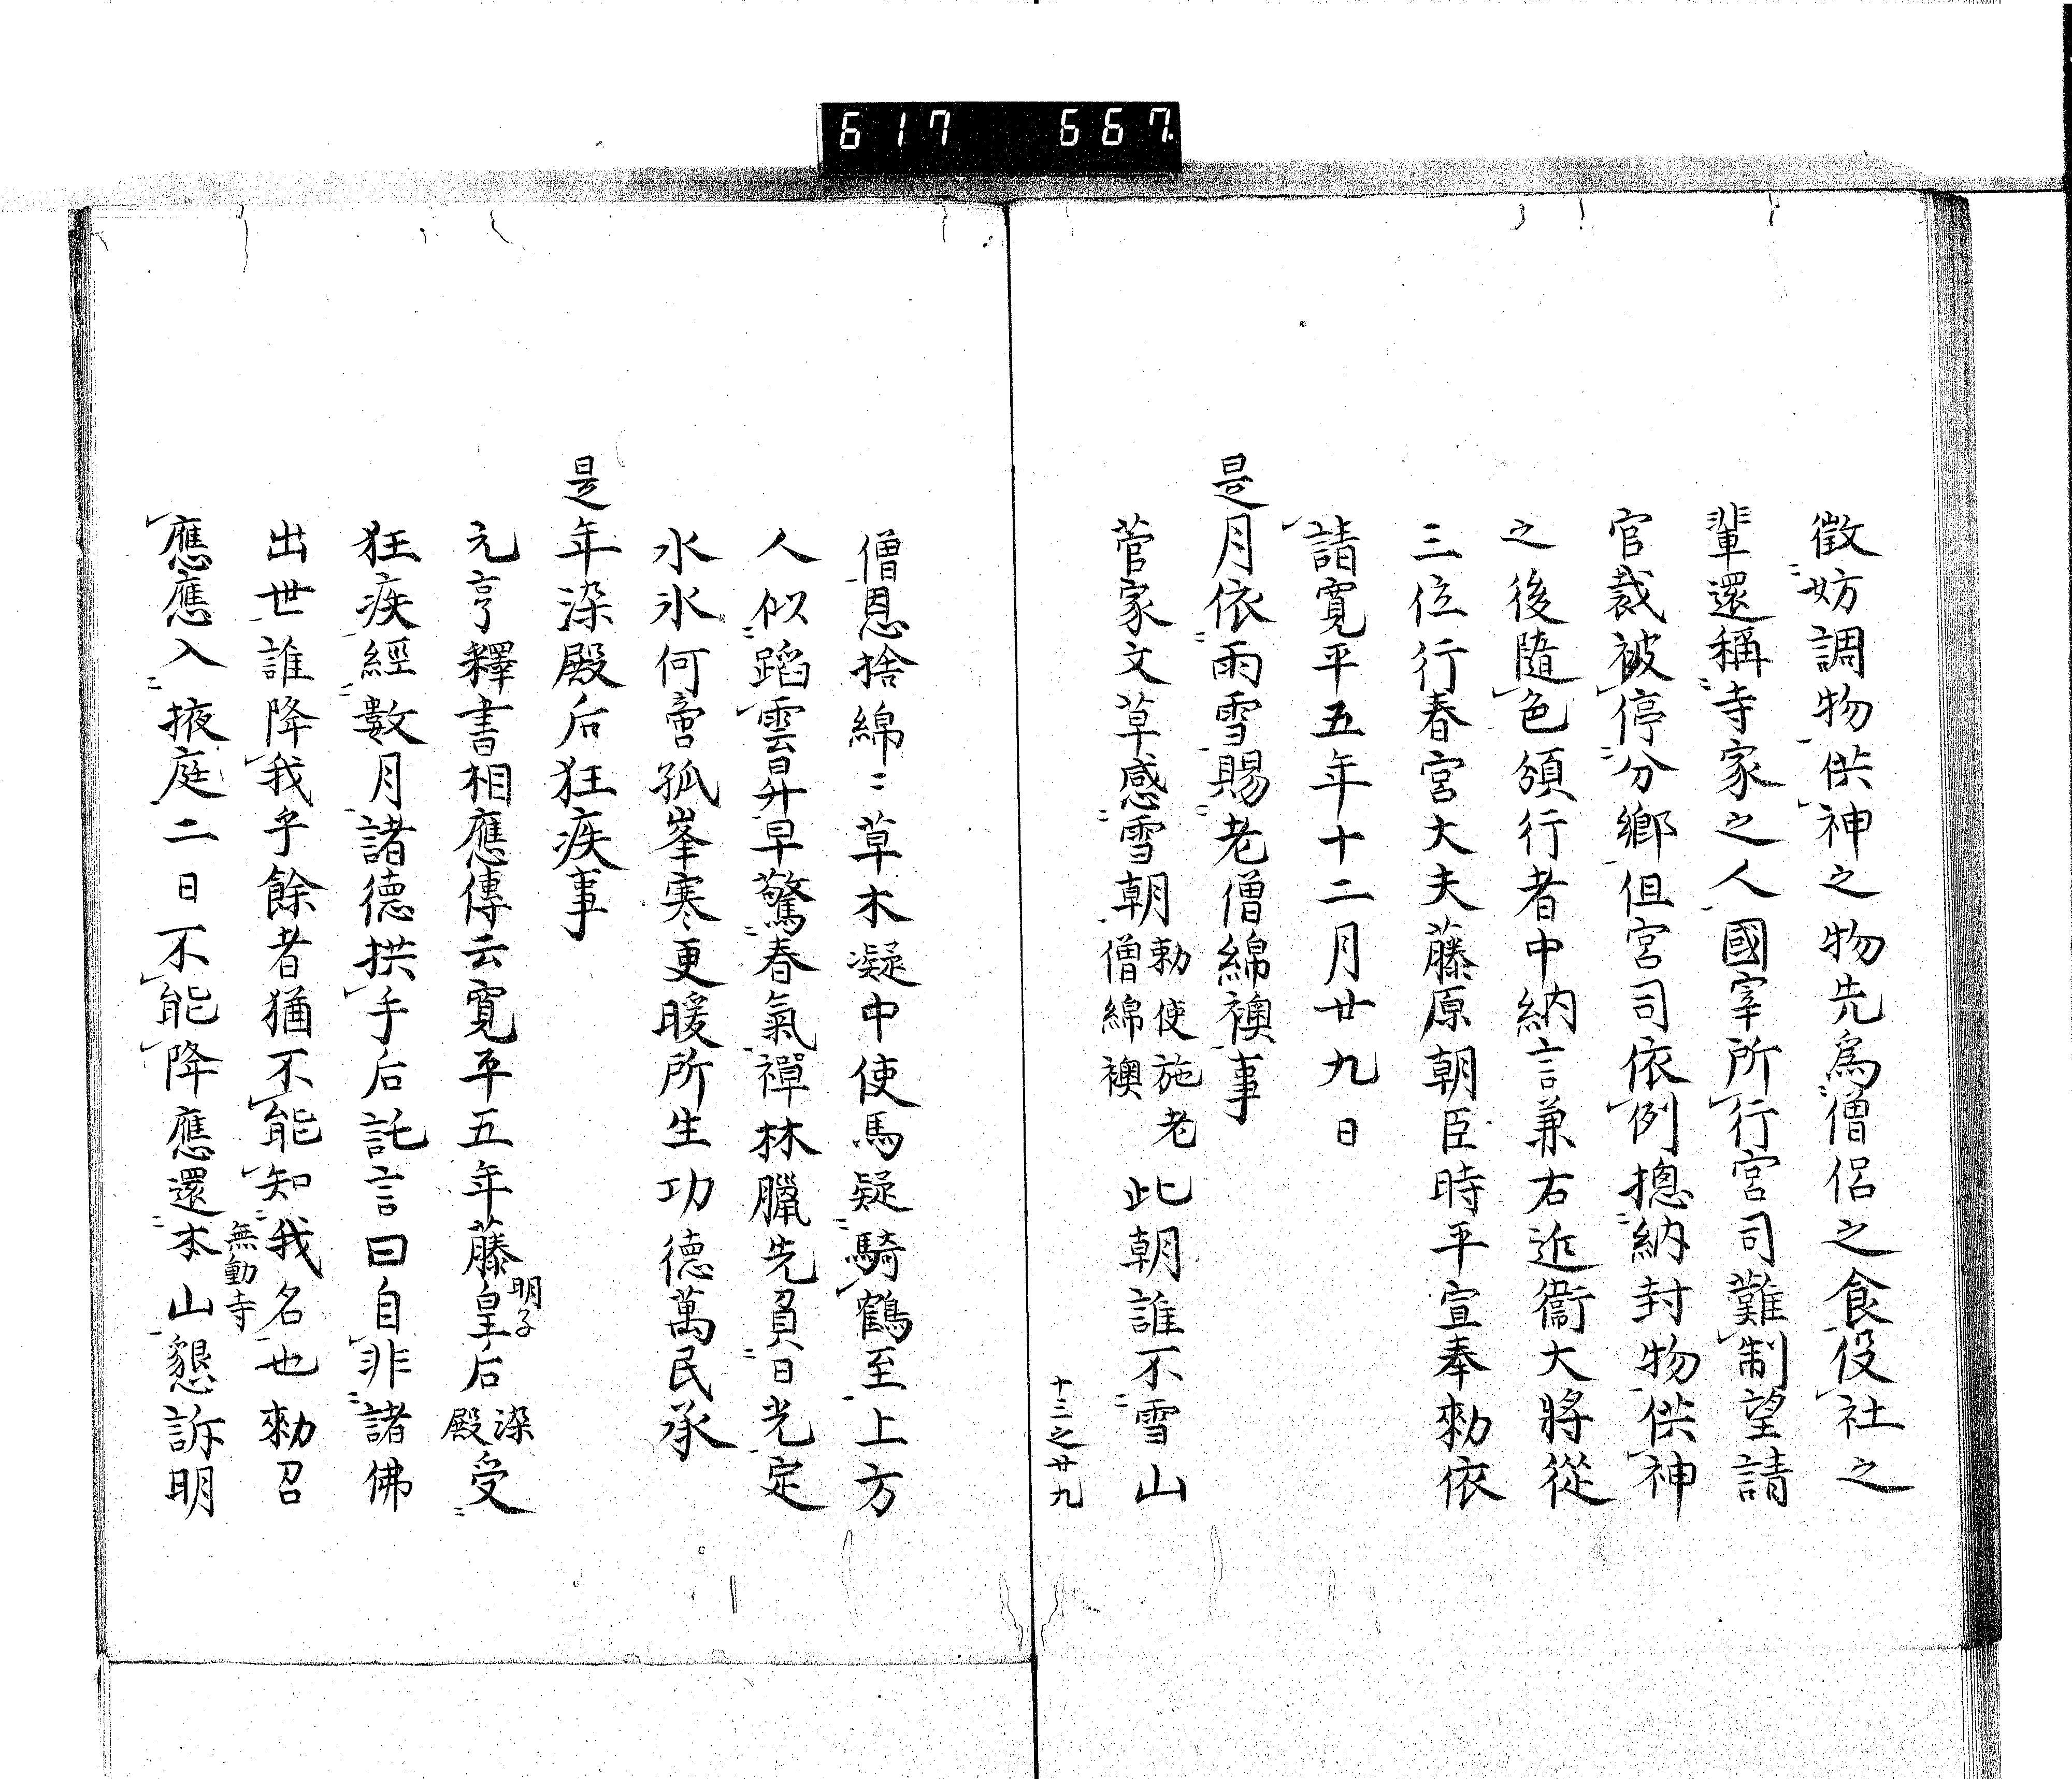 617 667.
徴妨調物供神之物先爲僧侶之食役社之
輩還稱寺家之人國宰所行宮司難制望請
官裁被停分鄕但宮司依例摠納封物供神
之後隨色頒行者中納言兼右近衞大將從
三位行春宮大夫藤原朝臣時平宣奉勅依
請寛平五年十二月廿九日
是月依雨雪賜老僧綿襖事
菅家文草感雪朝勅使施老僧綿襖此朝誰不雪山
十三之廿九
僧恩捨綿〻草木凝中使馬疑騎鶴至上方
人似蹈雲昇早驚春氣禪林臘先負日光定
水氷何啻孤峯寒更暖所生功德萬民承
是年染殿后狂疾事
元亨釋書相應傳云寛平五年藤皇后明子染殿受
狂疾經數月諸德拱手后託言曰自非諸佛
出世誰降我乎餘者猶不能知我名也勅召
應應入掖庭二日不能降應還本山無動寺懇訴明